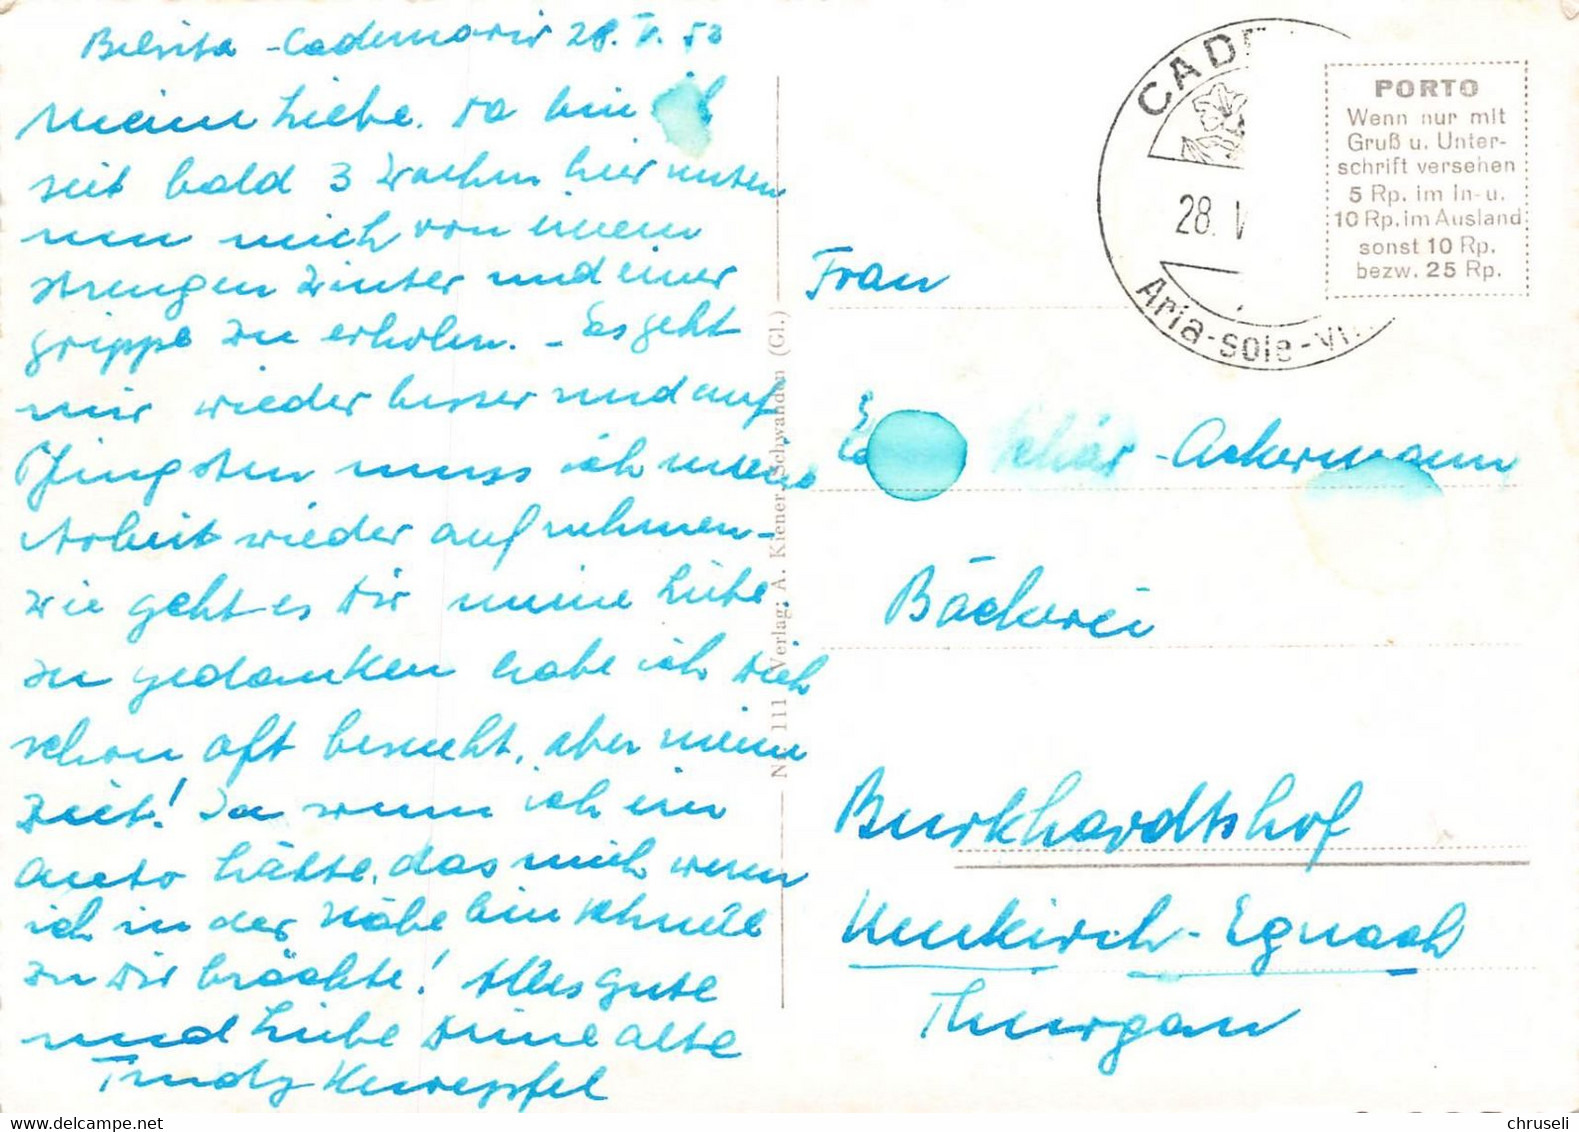 Cademario 28. V. 50
Meine Liebe. Da bin ich
seit bald 3 Wochen hier unten
um mich von einem
strengen Winter und einer
grippe zu erholen. - Es geht
mir wieder besser und auf
Pfingsten muss ich meine
Arbeit wieder aufnehmen -
wie geht es Dir meine Liebe.
in gedanken habe ich Dich
schon oft besucht, aber meine
Zeit! Ja wenn ich ein
Auto hätte, das mich wenn
ich in der Nähe bin schnell
zu Dir brächte! Alles Gute
und Liebe Deine alte
Trudy
Nr. 111 Verlag: A. Kiener, Schwanden (Gl.)
CADE
28. V
Aria-sole-vi
PORTO
Wenn nur mit
Gruß u. Unter-
schrift versehen
5 Rp. im In- u.
10 Rp. im Ausland
sonst 10 Rp.
bezw. 25 Rp.
Frau
Schär-Ackermann
Bäckerei
Burkhardtshof
Neukirch-Egnach
Thurgau
delcampe.net
chruseli